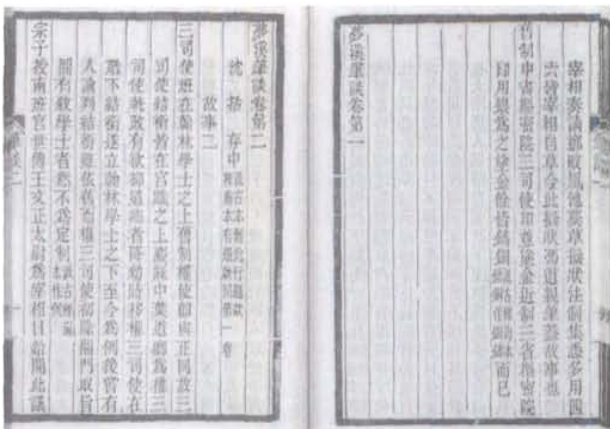 宰相奏請鄭畋鳳池藁草擬狀注制集悉多用四
六皆宰相自草今此擬狀馮道親筆蓋故事也
舊制中書樞密院三司使印並塗金近制三省樞密院
印用銀爲之塗金餘皆鑄銅而已
夢溪筆談卷第一
夢溪筆談卷第二
沈括 存中
故事二
三司使班在翰林學士之上舊制權使卽與正同故三
司使結銜皆在官職之上慶曆中葉道卿爲權三
司使執政有欲抑道卿者降勑時移權三司使在
職下結銜遂立翰林學士之下至今爲例後嘗有
人論列結銜雖依舊而權三司使初除閤門取旨
間有敘學士者然不爲定制
宗子授南班官世傳王文正太尉爲宰相日始開此議